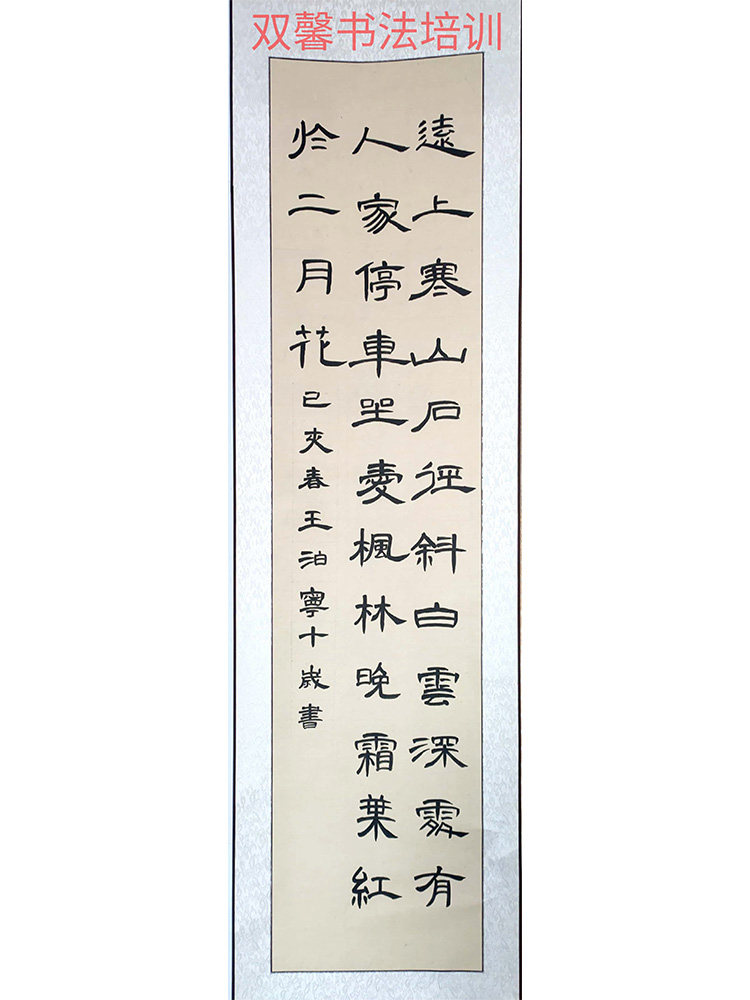 双馨书法培训
遠上寒山石徑斜白雲深處有
人家停車坐愛楓林晚霜葉紅
於二月花
己亥春王泊寧十歲書